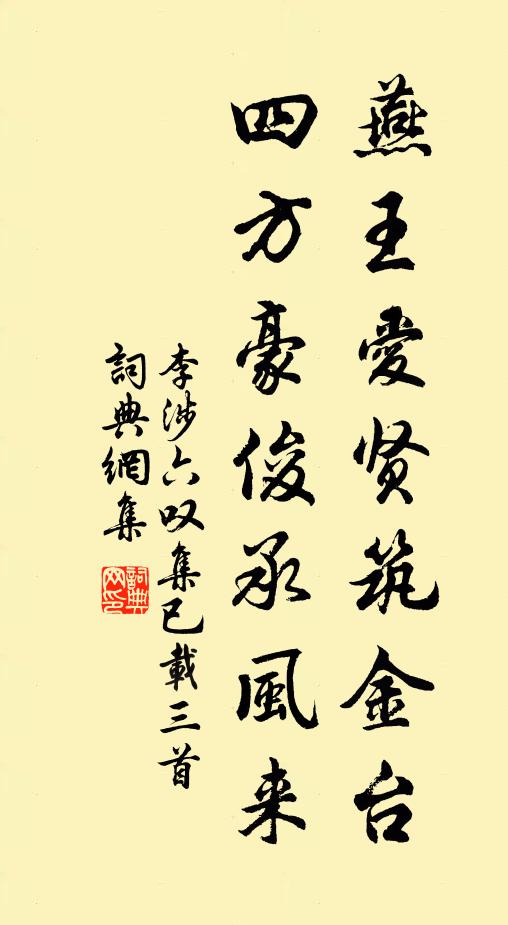 燕王愛贤筑金台
四方豪俊承風来
李涉六叹集已載三首
詞典網集
詞典網印